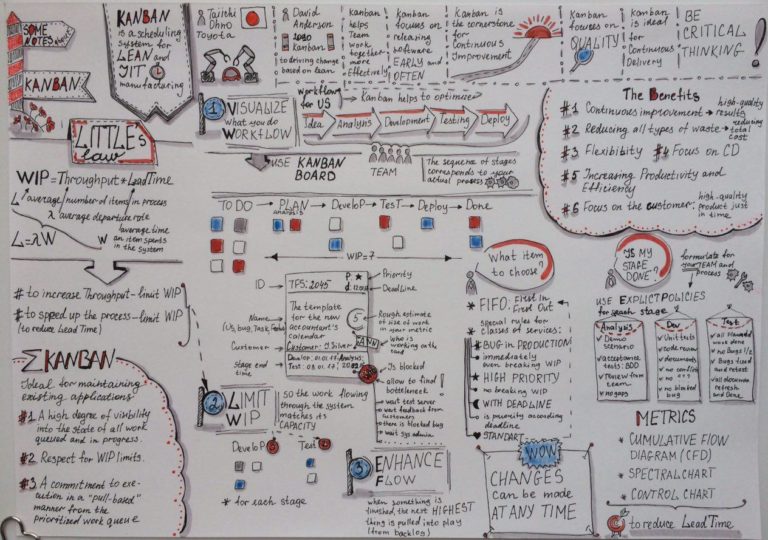 SOME
NOTES about
KANBAN
KANBAN
is a scheduling
system for
LEAN and
JIT
manufacturing
Taiichi
Ohno
Toyota
David
Anderson
Kanban
to driving change
based on lean
kanban
helps
Team
work
together
more
Effectively
Kanban
focuses on
releasing
software
EARLY and
OFTEN
Kanban is
the cornerstone
for
Continuous
Improvement
Kanban
focuses on
QUALITY
Kanban
is ideal
for
Continuous
Delivery
BE
CRITICAL
THINKING!
LITTLE's
law
WIP=Throughput*LeadTime
L average number of items in process
λ average departure rate
L=λW
W average time
an item spents
in the system
# to increase Throughput-limit WIP
# to speed up the process-limit WIP
(to reduce Lead Time)
ΣKANBAN
Ideal for maintaining
existing applications
#1 A high degree of visibility
into the state of all work
queued and in progress.
#2 Respect for WIP limits.
#3 A commitment to exe-
cution in a "pull-based"
manner from the
prioritized work queue
1 VISUALIZE
what you do
WORKFLOW
Workflow
for US
Kanban helps to optimize
Idea
Analysis
Development
Testing
Deploy
USE KANBAN
BOARD
TEAM
The sequence of stages
corresponds to your
actual process
TO DO → PLAN → DeveloP → TesT → Deploy → Done
analysis
WIP=7
ID
TFS: 2045
P: ★
d:
Priority
DeadLine
Name
(US, bug, Task, Feature)
The template
for the new
accountant's
Calendar
5
Rough estimate
of size of work
in your metric
Customer
Customer: J. Silver
ANN
Who is
working on the
task
Stage end
time
Develop: 01.01.17; Analysis:
Is blocked
allow to find
bottleneck
wait test server
wait feedback from
customers
there is blocked bug
wait sys admin
2 LIMIT
WIP
so the work flowing
through the system
matches its
CAPACITY
DeveloP
Test
* for each stage
3 ENHANCE
FLOW
when something is
finished, the next HIGHEST
thing is pulled into play
(from backlog)
What item
to choose?
* FIFO: First In
First Out
special rules for
classes of services:
BUG IN PRODUCTION
immediately
even breaking WIP
★ HIGH PRIORITY
no breaking WIP
WITH DEADLINE
is priority according
deadline
STANDART
WOW
CHANGES
can be made
AT ANY TIME
The Benefits
#1 Continuous improvement → high-quality
results
#2 Reducing all types of waste → reducing
total
cost
#3 Flexibility #4 Focus on CD
#5 Increasing Productivity and
Efficiency
#6 Focus on the customer: high-quality
product just
in time
IS MY
STAGE
DONE?
formulate for
your TEAM and
process
USE EXPLICT POLICIES
for each stage
Analysis
✓ Demo
scenario
✓ acceptance
tests: BDD
✓ review from
team
✓ no gaps
Dev
Unit tests
code review
documents
no conflicts
no blocked
bug
Test
all planned
work done
no bugs 1/2
Bugs fixed
and retest
all document
refresh
and Done
METRICS
* CUMULATIVE FLOW
DIAGRAM (CFD)
* SPECTRAL CHART
* CONTROL CHART
to reduce Lead Time